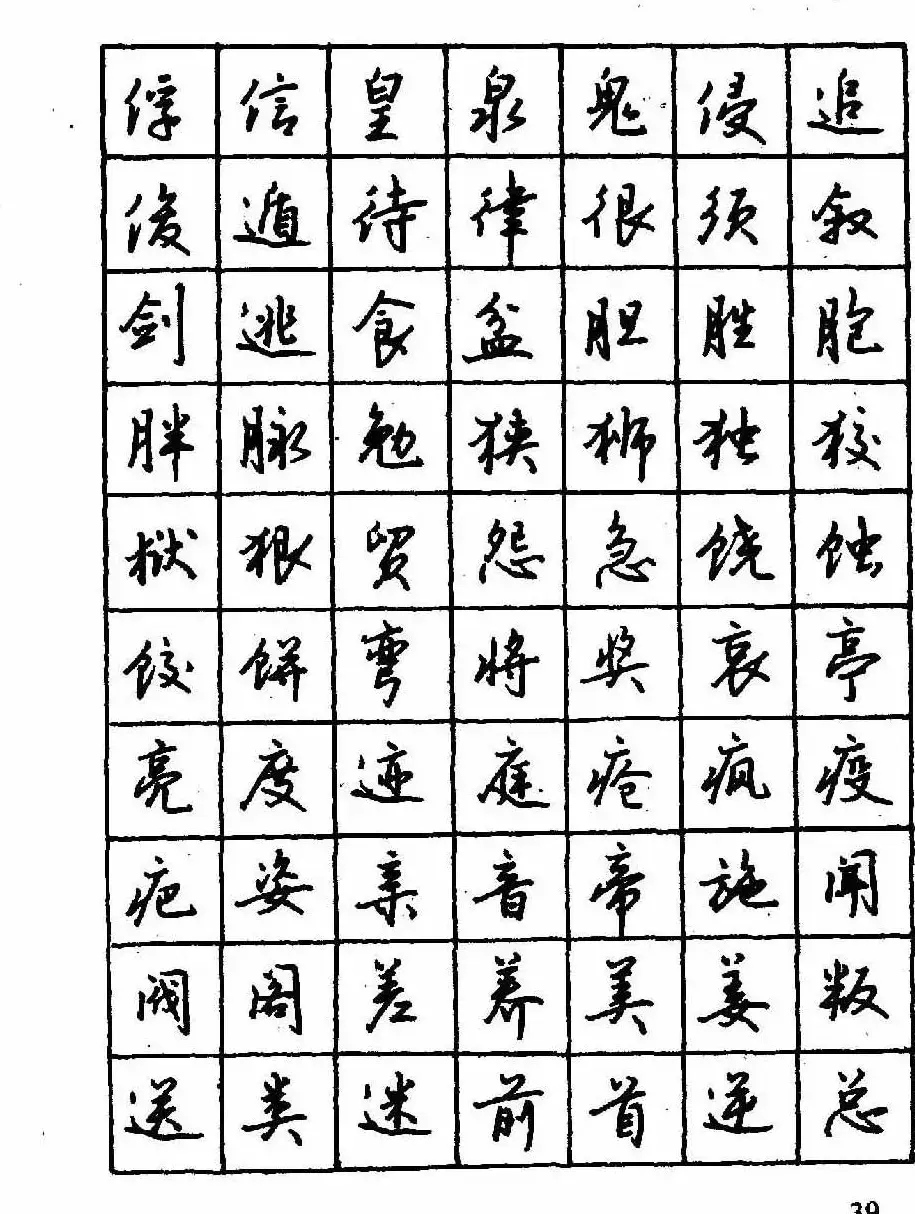 俘信皇泉鬼侵追
俊遁待律很须叙
剑逃食盆胆胜胞
胖脉勉狭狮独狡
狱狠贸怨急饶蚀
饺饼弯将奖哀亭
亮度迹庭疮疯疫
疤姿亲音帝施闻
阀阁差养美姜叛
送类迷前首逆总
39